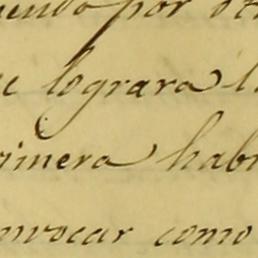 iendo por otr
e lograra l
rimera hab
nvocar como